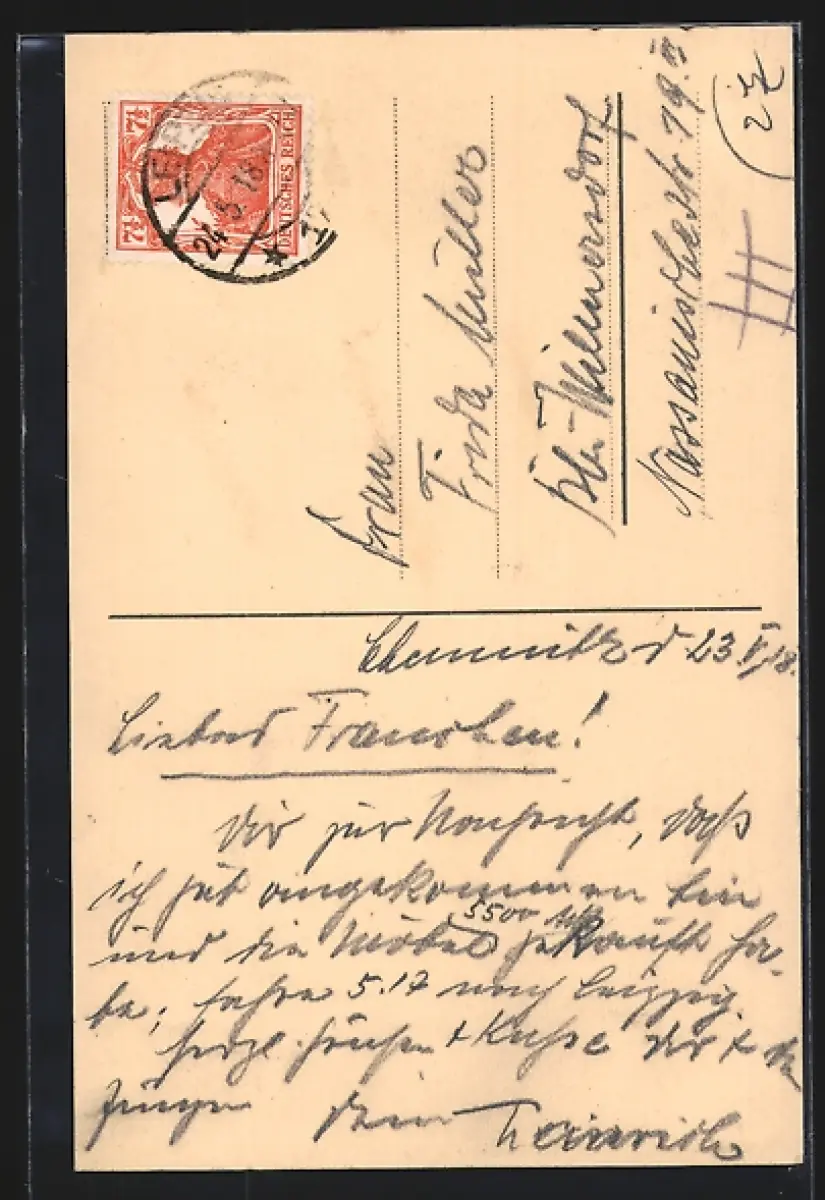 7½
DEUTSCHES REICH
7½
24.5.18
Frau
Frida Müller
Bln-Wilmersdorf
Nassauische str. 19. II
Chemnitz d 23. V. 18.
Liebes Frauchen!
Dir zur Nachricht, daß
ich gut angekommen bin
5500 Mk
und die Möbel gekauft ha-
be; fahre 5.17 nach Leipzig.
Herzl. Grüße + Küsse Dir +
Jungen Dein Heinrich